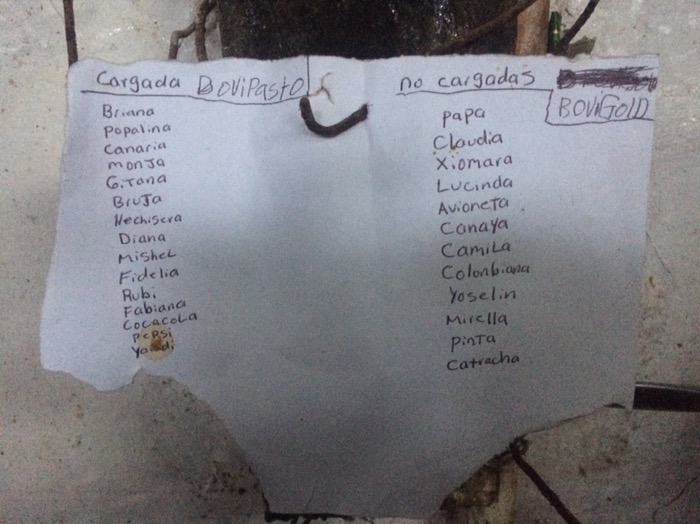 Cargada BOViPasto
Briana
Popalina
Canaria
monJa
GiTana
BruJa
Hechisera
Diana
Mishel
Fidelia
Rubi
Fabiana
COCaCOLa
PePsi
no cargadas
BOViGOlD
papa
Claudia
Xiomara
Lucinda
AvioneTa
Canaya
CamiLa
Colonbiana
Yoselin
Mirella
pinTa
Catracha